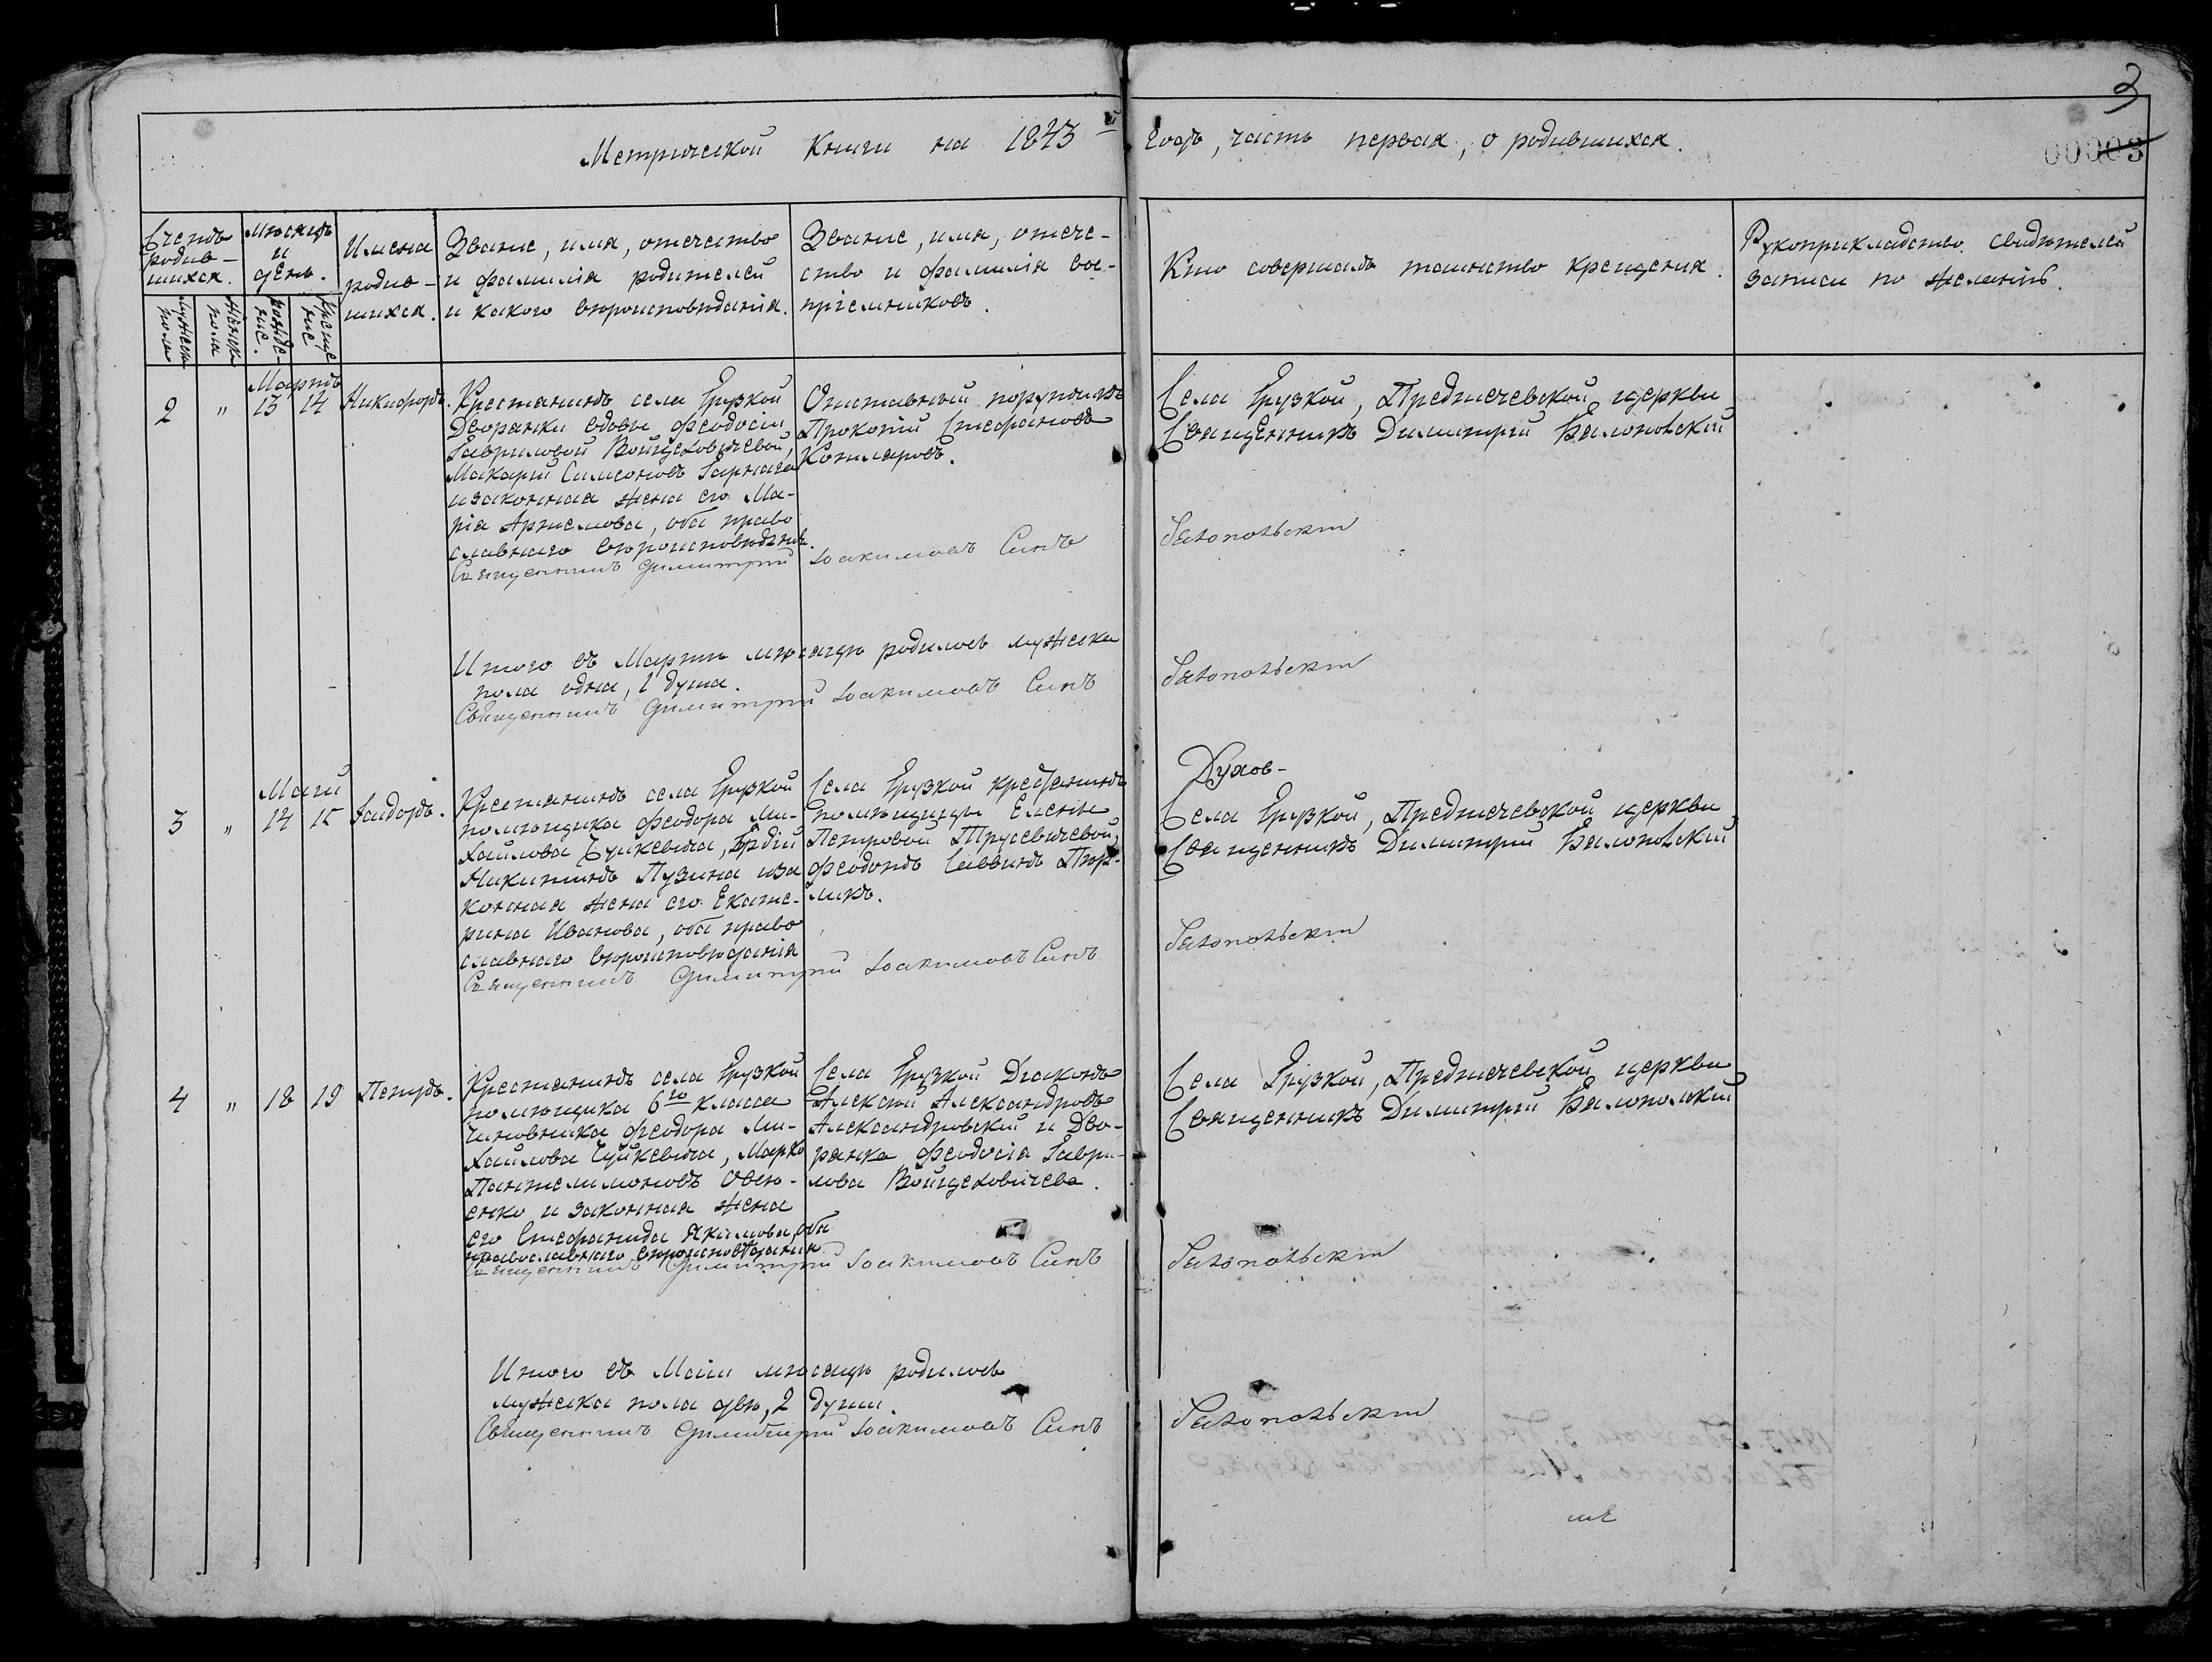 3
00003
Метрической Книги на 1843й годъ, часть первая, о родившихся.
Счетъ родив-
шихся.
мужеска пола
женска пола
Мѣсяцъ
и
день.
рожде-
ніе.
Креще
ніе
Имена
родив-
шихся.
Званіе, имя, отечество
и фамилія родителей
и какого вѣроисповѣданія.
Званіе, имя, отече-
ство и фамилія вос-
пріемниковъ.
Кто совершалъ таинство крещенія.
Рукоприкладство свидѣтелей
записи по желанію.
Мартъ
2 " 13 14 Никифоръ.
Крестьянинъ села Грузкой
Дворянки вдовы Феодосіи
Гавриловой Войцеховичевой,
Макарій Симеоновъ
и законная жена его Ма-
рія Артемова, оба право
славнаго вѣроисповѣданія.
Отставный порутчикъ
Прокопій Стефановъ
Котляровъ.
Села Грузкой, Предтечевской церкви
Священникъ Димитрій
Священникъ Димитрій Іоакимовъ Синъ
Итого въ Мартѣ мѣсяцѣ родилось мужеска
пола одна, 1 душа.
Священникъ Димитрій Іоакимовъ Синъ
Маій
3 " 14 15 Ісидоръ.
Крестьянинъ села Грузкой
помѣщика Феодора Ми-
хайлова Чуйкевича,
Никитинъ Пузина и за
конная жена его Екате-
рина Иванова, оба право
славнаго вѣроисповѣданія
Села Грузкой крестьянинъ
помѣщицы Елены
Петровой Трусевичевой,
Феодотъ Саввинъ
Духов-
Села Грузкой, Предтечевской церкви
Священникъ Димитрій
Священникъ Димитрій Іоакимовъ Синъ
4 " 18 19 Петръ.
Крестьянинъ села Грузкой
помѣщика 6го класса
чиновника Феодора Ми-
хайлова Чуйкевича, Марко
Пантелимоновъ Овсѣ-
енко и законная жена
его Стефанида Якимова, оба
православнаго вѣроисповѣданія
Села Грузкой Діаконъ
Алексій Александровъ
Александровскій и Дво-
рянка Феодосія Гаври-
лова Войцеховичева.
Села Грузкой, Предтечевской церкви
Священникъ Димитрій
Священникъ Димитрій Іоакимовъ Синъ
Итого въ Маіи мѣсяцѣ родилось
мужеска пола двѣ, 2 души.
Священникъ Димитрій Іоакимовъ Синъ